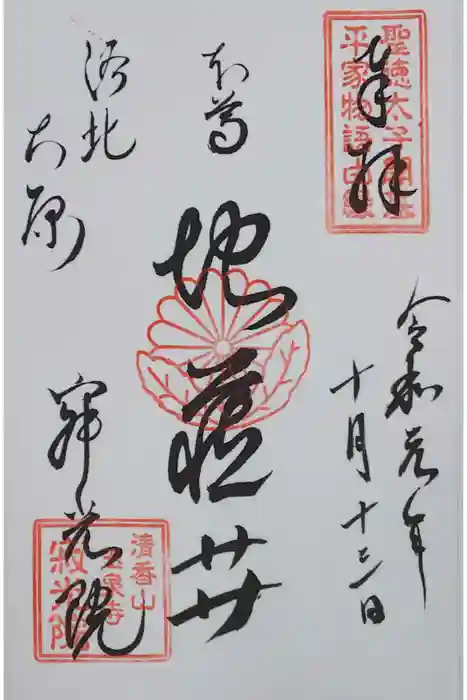 奉拝
聖徳太子開基
平家物語由緒
令和元年
十月十三日
本尊
地蔵廾
洛北
大原
寂光院
清香山
玉泉寺
寂光院